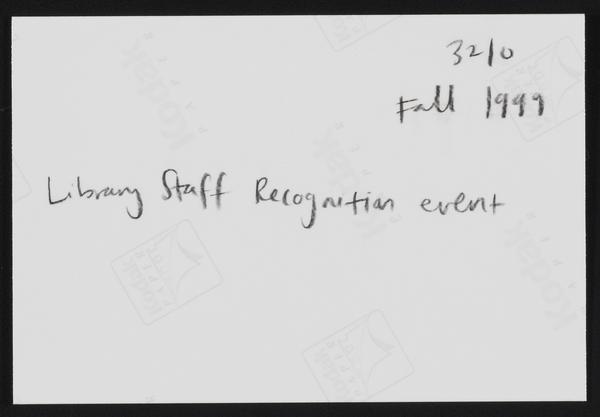 3210
Fall 1999
Library Staff Recognition event
Kodak
Kodak
PAPER
Kodak
Kodak
PAPER